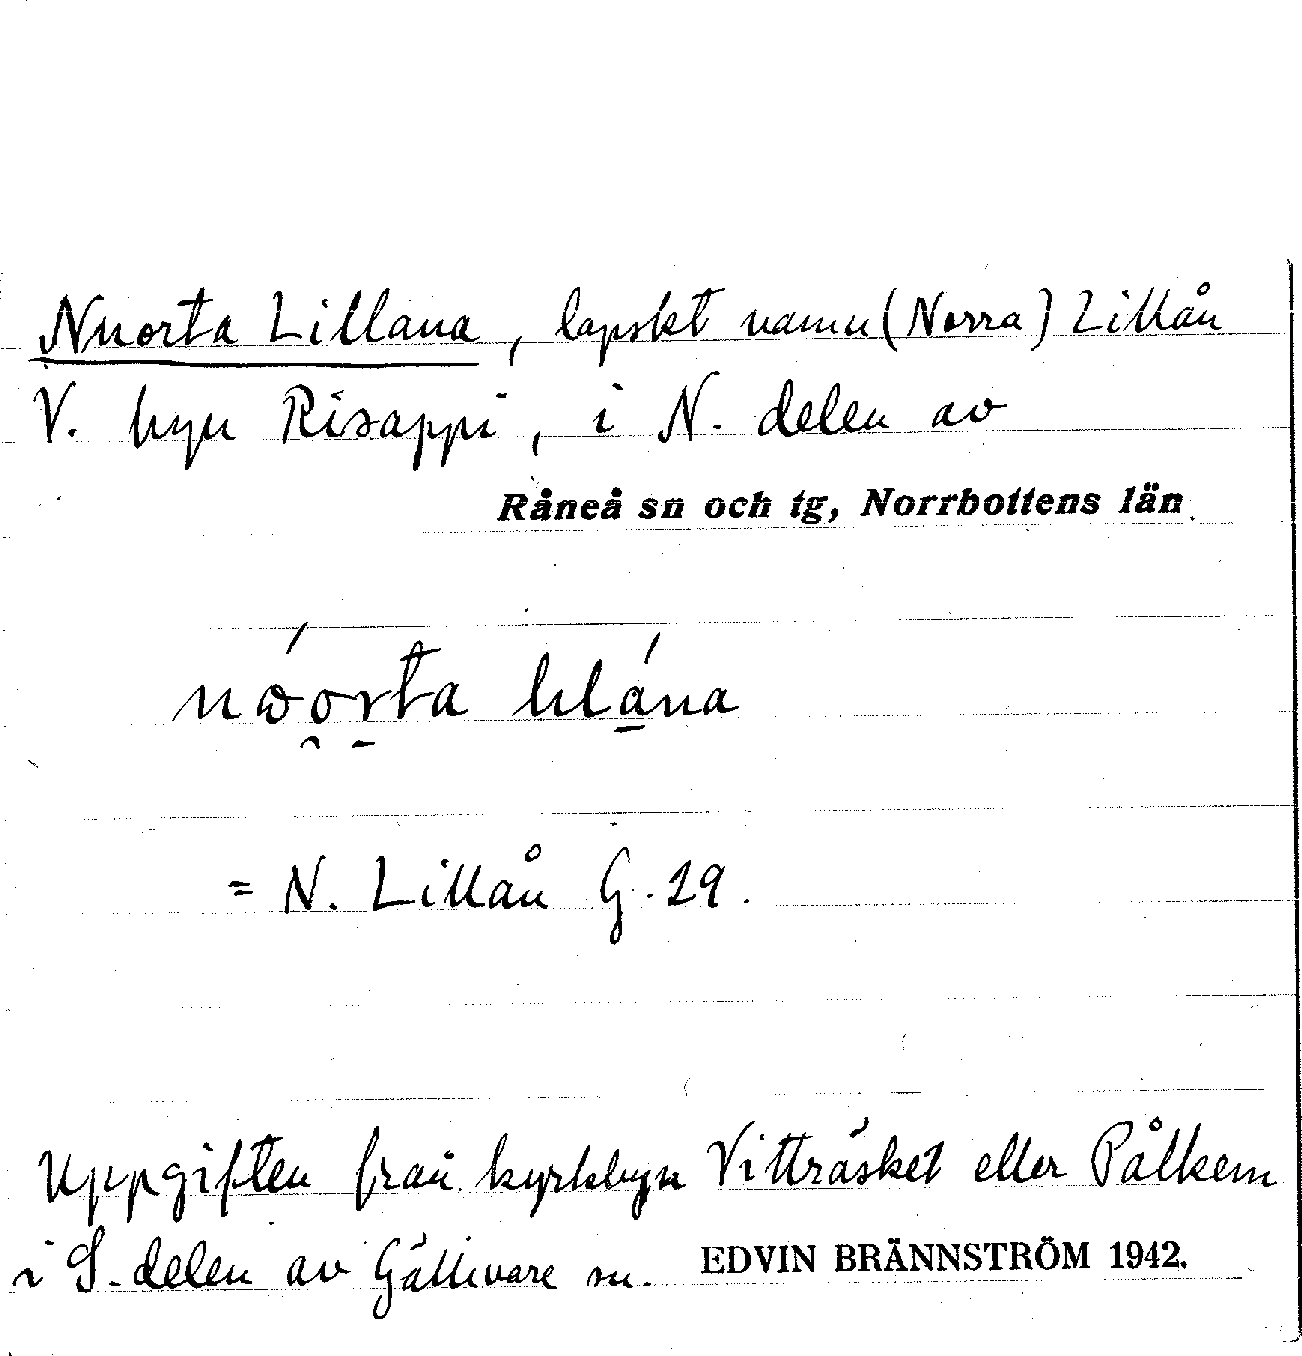 Nuorta Lillana, lapskt namn (Norra) Lillån
V. byn Risappi, i N. delen av
Råneå sn och tg, Norrbottens län
= N. Lillån G. 29.
Uppgiften från kyrkbyn Vitträsket eller Pålkem
i S. delen av Gällivare sn. EDVIN BRÄNNSTRÖM 1942.